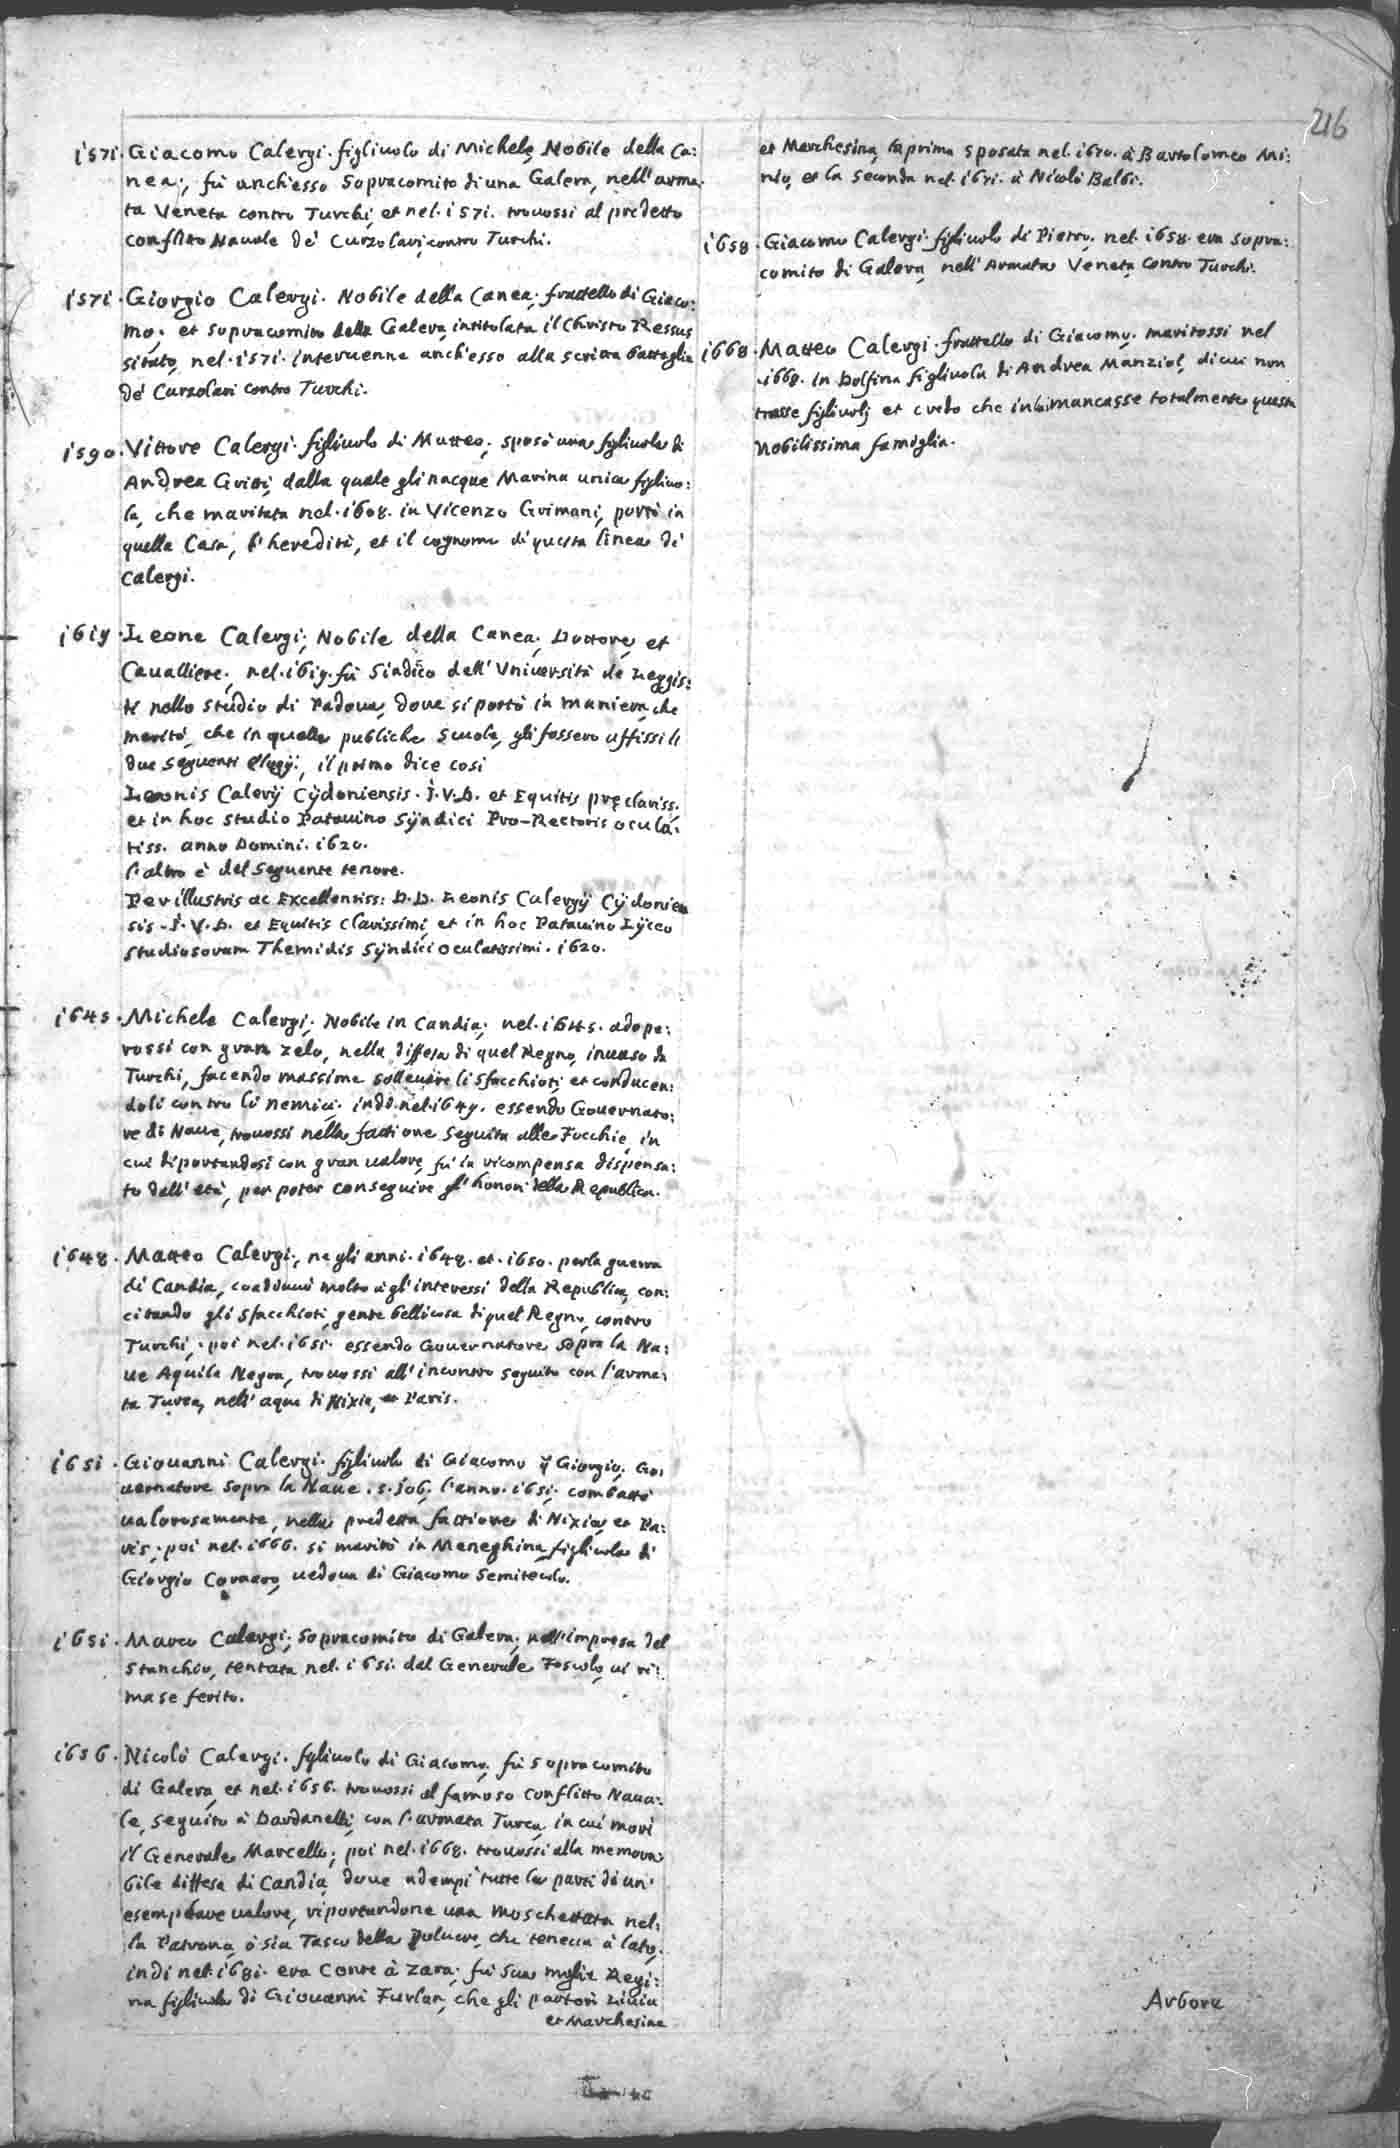 216
1571. Giacomo Calergi. figliuolo di Michele, Nobile della Ca:
nea;, fù anch'esso Sopracomito di una Galera, nell'arma:
ta Veneta contro Turchi, et nel. 1571. trouossi al predetto
conflitto Nauale de' Curzolari, contro Turchi.
1571. Giorgio Calergi. Nobile della Canea; frattello di Giaco:
mo; et sopracomito della Galera, intitolata il Christo Ressus
sitato, nel. 1571. interuenne anch'esso alla scritta battaglia
de' Curzolari contro Turchi.
1590. Vittore Calergi. figliuolo di Matteo; sposò una figliuola di
Andrea Gritti, dalla quale gli nacque Marina unica figliuo:
la, che maritata nel. 1608. in Vicenzo Grimani, portò in
quella Casa, l'heredità, et il cognome di questa linea di
Calergi.
1619. Leone Calergi; Nobile della Canea; Dottore, et
Caualliere; nel. 1619. fù Sindico dell'Vniuersità de Leggis:
ti nello studio di Padoua, doue si portò in maniera, che
meritò, che in quelle publiche Scuole, gli fossero affissi li
due seguenti Elogij;, il primo dice così
Leonis Calerij Cydoniensis. J.V.D. et Equitis pręclariss.
et in hoc studio Patauino Syndici Pro-Rectoris oculá:
tiss. anno Domini. 1620.
l'altro è del seguente tenore.
Perillustris ac Excellentiss: D.D. Leonis Calergij Cydonien
sis. J.V.D. et Equitis clarissimi, et in hoc Patauino Lyceo
studiosorum Themidis Syndici oculatissimi. 1620.
1645. Michele Calergi; Nobile in Candia; nel. 1645. adope:
rossi con gran zelo, nella diffesa di quel Regno, inuaso da
Turchi, facendo massime solleuare li Sfacchioti, et conducen:
doli contro li nemici. indi nel. 1649. essendo Gouernato:
re di Naue, trouossi nella fattione seguita alle Focchie, in
cui diportandosi con gran ualore, fù in ricompensa dispensa:
to dell'età, per poter conseguire gl'honori della Republica.
1648. Matteo Calergi;, negli anni. 1648. et. 1650. per la guerra
di Candia, coadiuuò molto à gl'interessi della Republica, con:
citando gli Sfacchioti, gente bellicosa di quel Regno, contro
Turchi;. poi nel. 1651. essendo Gouernatore sopra la Na:
ue Aquila Negra, trouossi all'incontro seguito con l'arma:
ta Turca, nell'aque di Nixia, et Paris.
1651. Giouanni Calergi. figliuolo di Giacomo q Giorgio; Go:
uernatore sopra la Naue. s. Iob; l'anno. 1651; combattè
ualorosamente, nella predetta fattione di Nixia, et Pa:
ris;. poi nel. 1666. si maritò in Meneghina, figliuola di
Giorgio Cornaro, uedoua di Giacomo Semitecolo.
1651. Marco Calergi; Sopracomito di Galera; nell'impresa del
Stanchio, tentata nel. 1651. dal Generale Foscolo, ui ri:
mase ferito.
1656. Nicolò Calergi. figliuolo di Giacomo; fù sopracomito
di Galera, et nel. 1656. trouossi al famoso conflitto Naua:
le, seguito à Dardanelli, con l'armata Turca, in cui morì
il Generale Marcello; poi nel. 1668. trouossi alla memora
bile diffesa di Candia, doue adempì tutte le parti di un'
esemplare ualore, riportandone una moschettata nel:
la Patrona, ò sia Tasca della Poluere, che teneua à lato;
indi nel. 1681. era Conte à Zara; fù sua moglie Regi:
na figliuola di Giouanni Furlan, che gli partorì Liuia
et Marchesina
et Marchesina, la prima sposata nel. 1670. à Bartolomeo Mi:
nio, et la seconda nel. 1671. à Nicolò Balbi.
1658. Giacomo Calergi. figliuolo di Pietro; nel. 1658. era sopra:
comito di Galera, nell'Armata Veneta, contro Turchi.
1668. Matteo Calergi. frattello di Giacomo; maritossi nel
.1668. in Dolfina figliuola di Andrea Manziol, di cui non
trasse figliuoli; et credo che in lui mancasse totalmente questa
Nobilissima famiglia.
Arbore